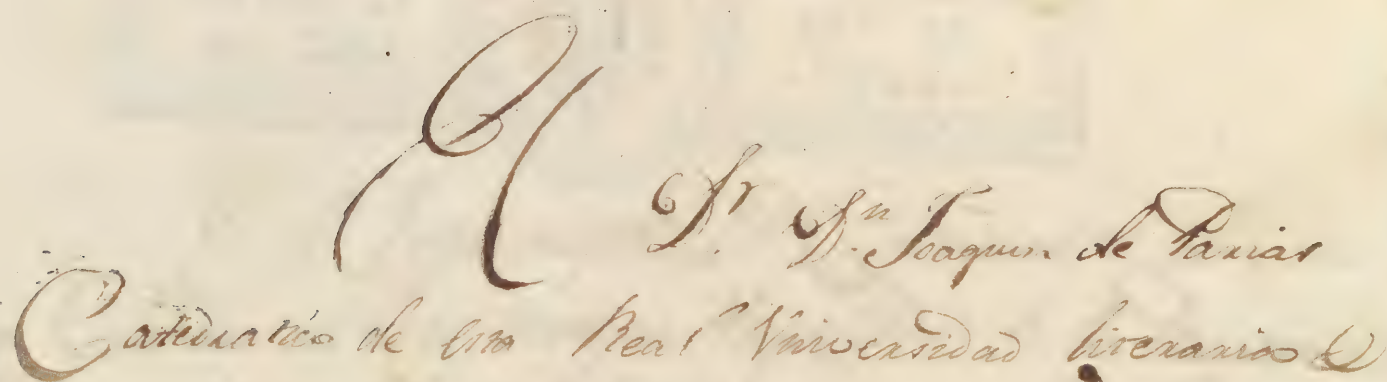 El Dr. Dn. Joaquin de Parias
Catedratico de esta Real Universidad literaria